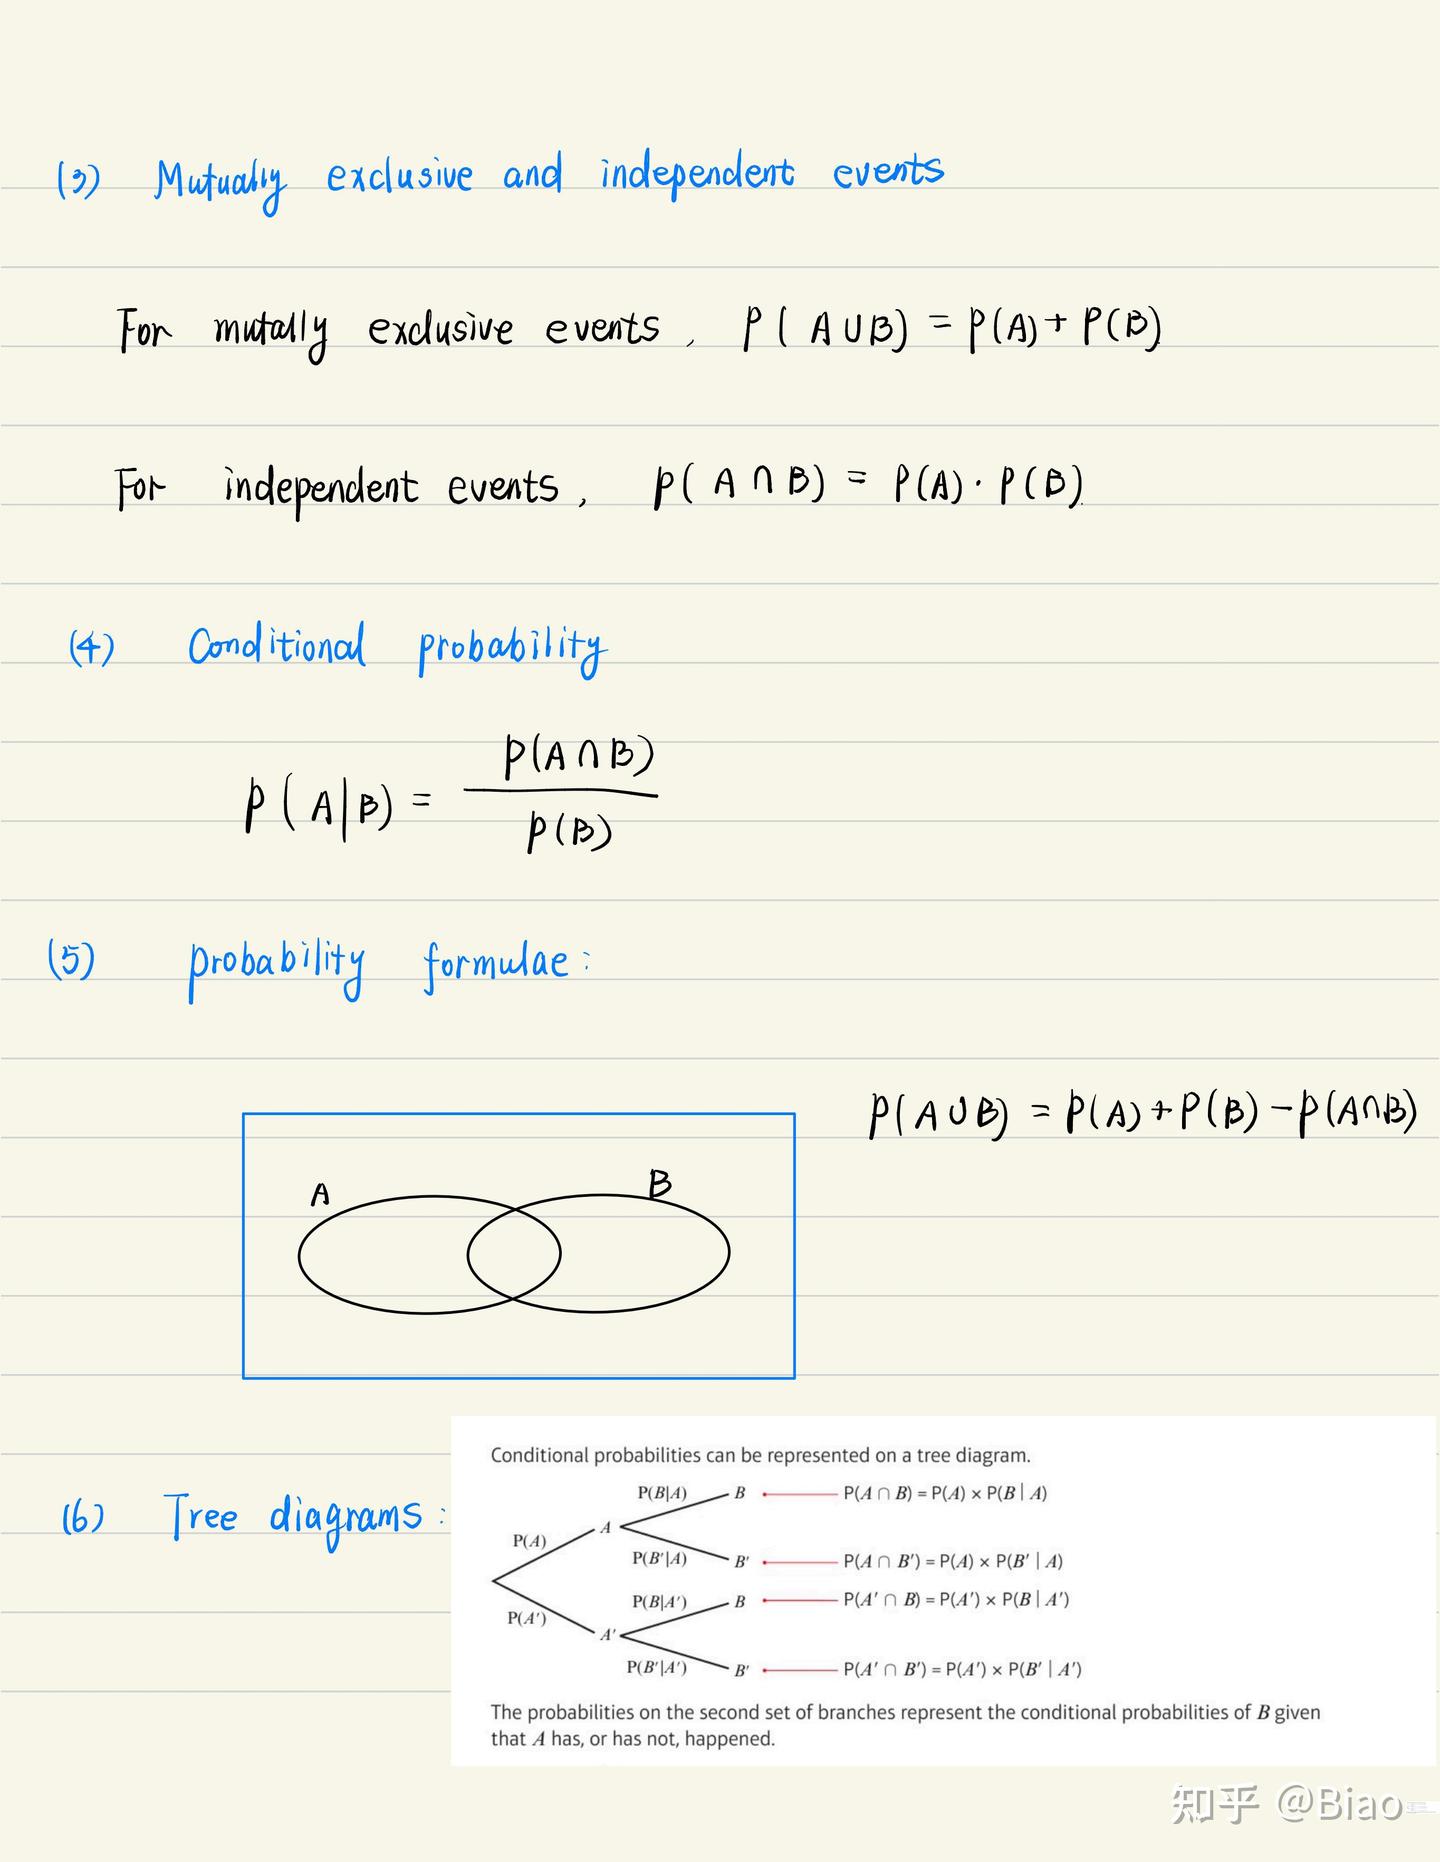 (3) Mutually exclusive and independent events
For mutally exclusive events, P(A∪B) = P(A) + P(B)
For independent events, P(A∩B) = P(A)·P(B)
(4) Conditional probability
P(A∩B)
P(A|B) =
P(B)
(5) probability formulae:
P(A∪B) = P(A)+P(B)-P(A∩B)
A B
Conditional probabilities can be represented on a tree diagram.
P(B|A) B P(A ∩ B) = P(A) × P(B | A)
(6) Tree diagrams:
P(A) A
P(B′|A) B′ P(A ∩ B′) = P(A) × P(B′ | A)
P(B|A′) B P(A′ ∩ B) = P(A′) × P(B | A′)
P(A′) A′
P(B′|A′) B′ P(A′ ∩ B′) = P(A′) × P(B′ | A′)
The probabilities on the second set of branches represent the conditional probabilities of B given
that A has, or has not, happened.
知乎 @Biao